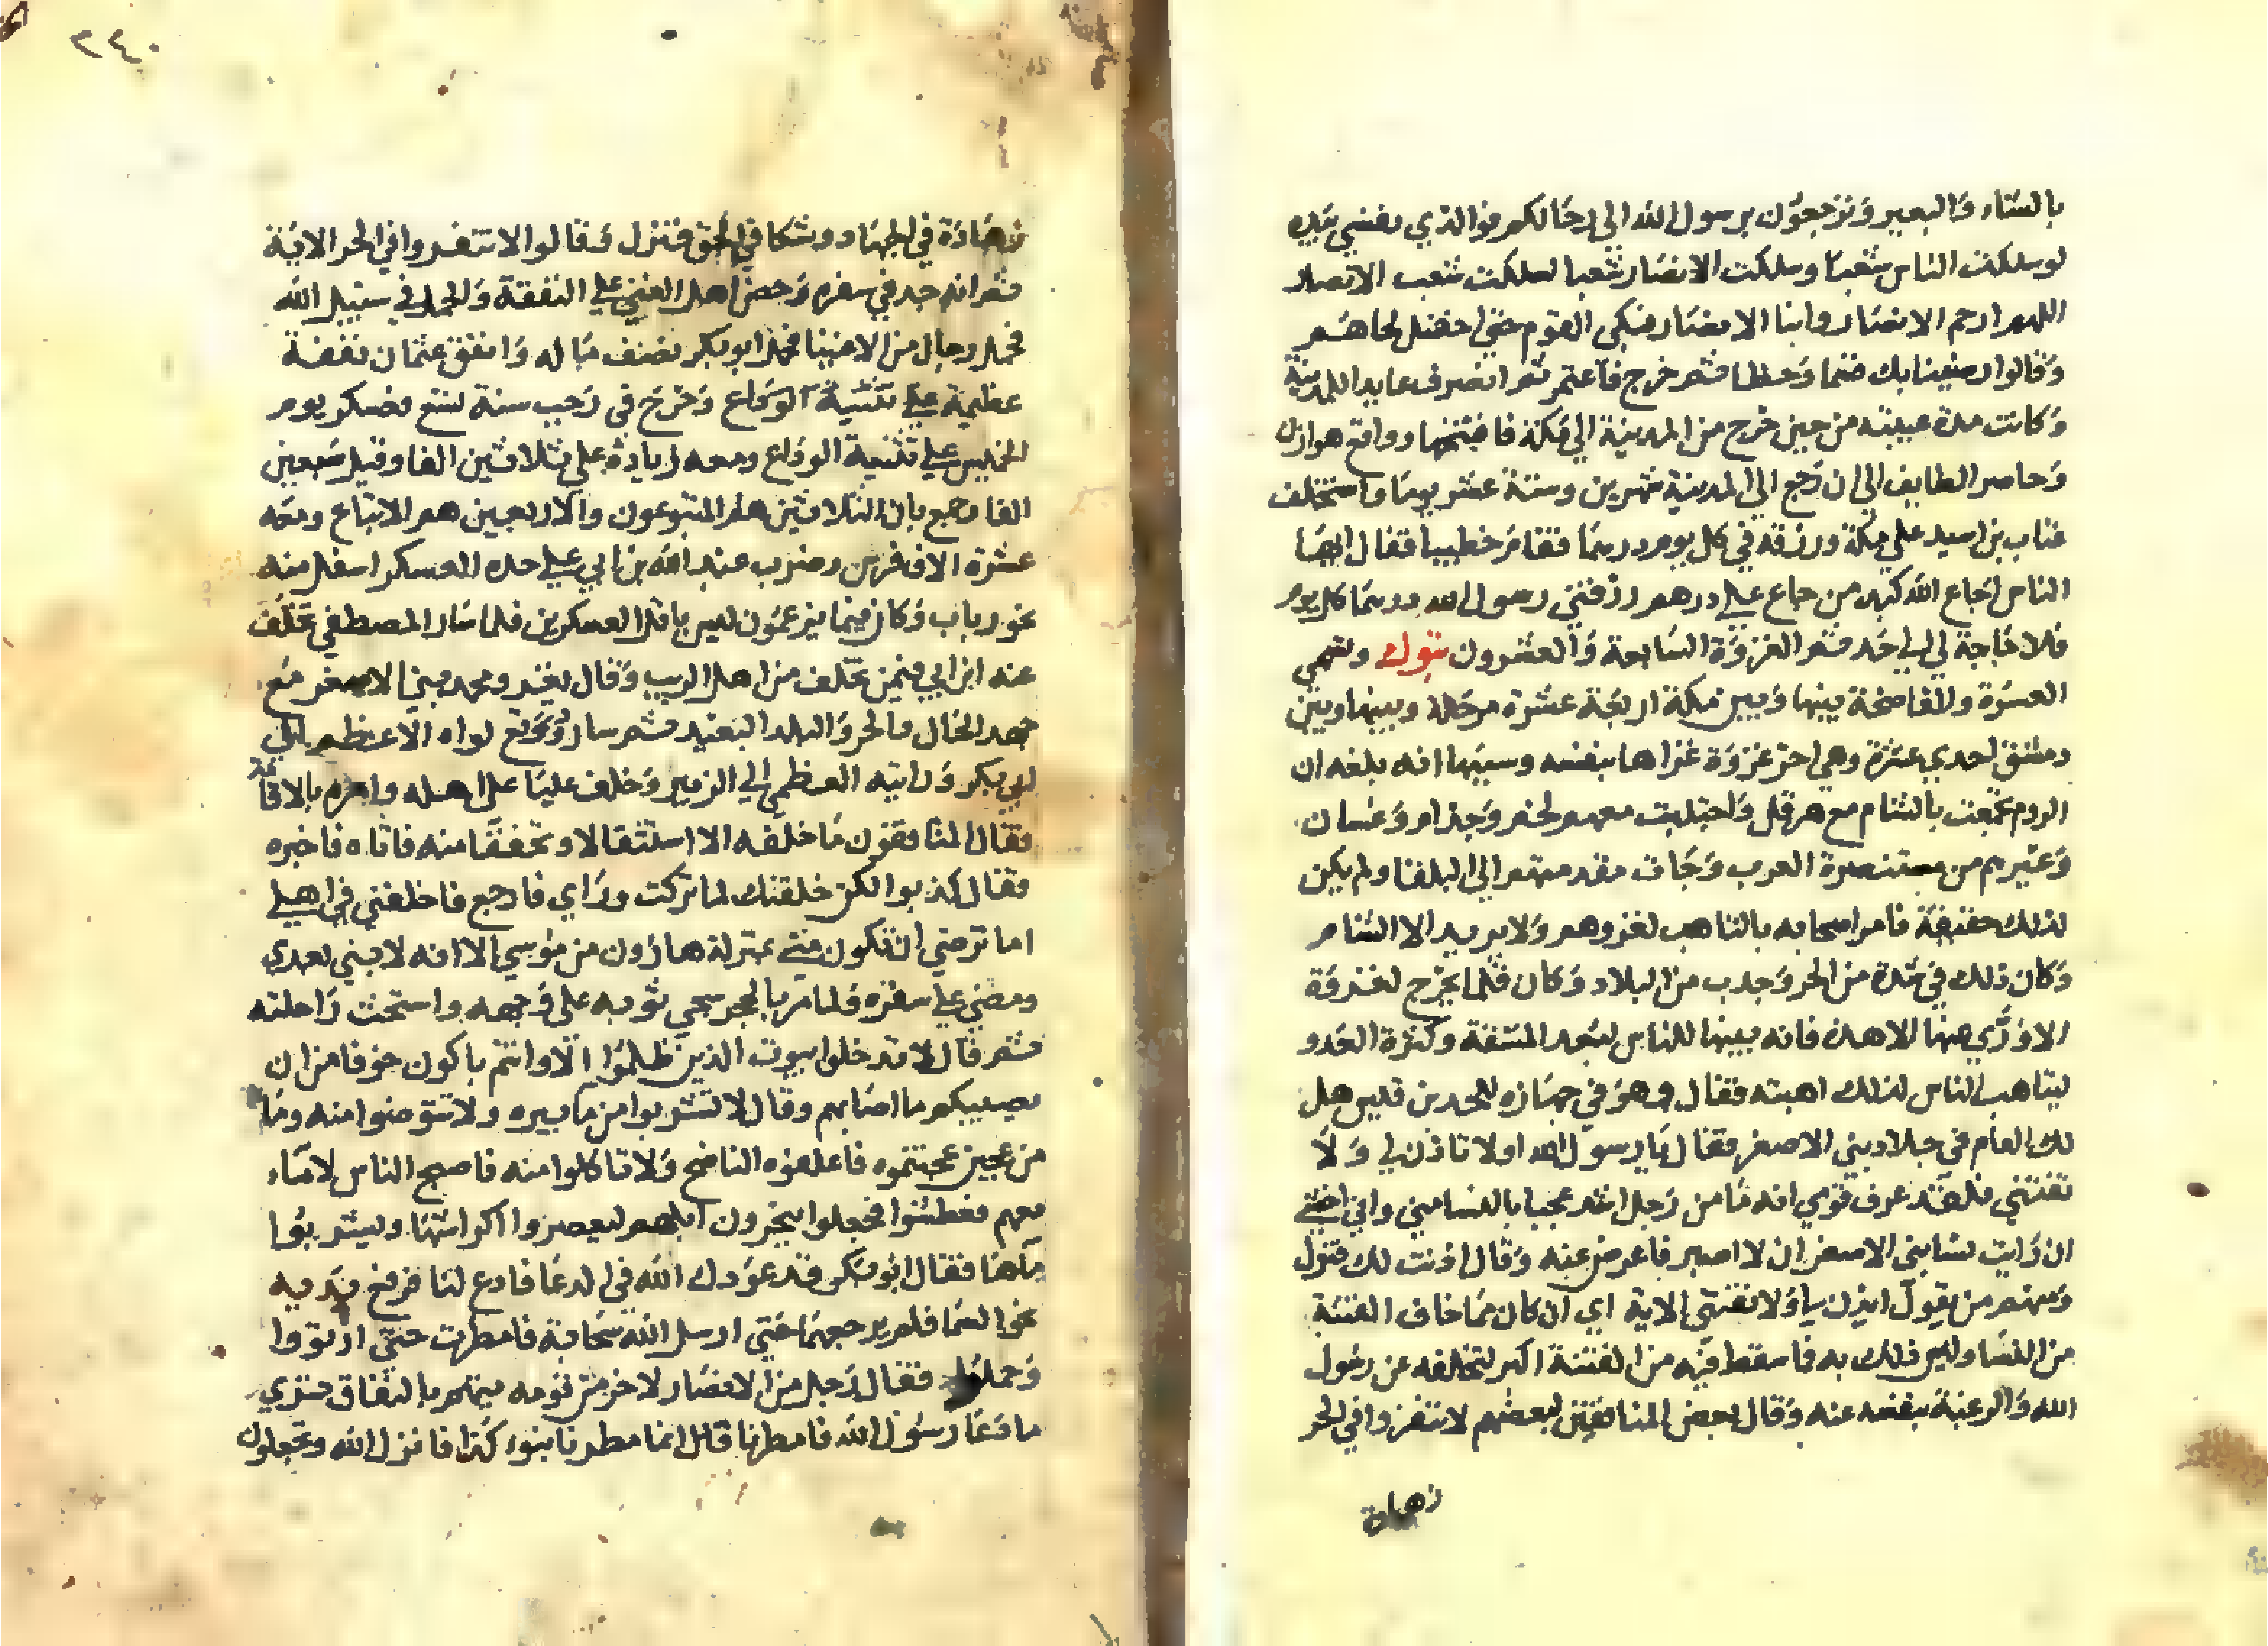 بالشاء والبعير وترجعون برسول الله الى رحالكم فوالذي نفسي بيده
لو سلكت الناس شعبا وسلكت الانصار شعبا لسلكت شعب الانصار
اللهم ارحم الانصار وابنا الانصار فبكى القوم حتى اخضل لحاهم
وقالوا رضينا بك قسما وحظا ثم خرج فاعتمر ثم انصرف عايدا للمدينة
وكانت مدة غيبته من حين خرج من المدينة الى مكة فافتتحها وواقع هوازن
وحاصر الطايف الى ان رجع الى المدينة شهرين وستة عشر يوما واستخلف
عتاب بن اسيد على مكة ورزقه في كل يوم درهما فقام خطيبا فقال ايها
الناس اجاع الله كبد من جاع على درهم رزقني رسول الله درهما كل يوم
فلا حاجة لي الى احد ثم الغزوة السابعة والعشرون تبوك وتسمى
العسرة والفاضحة بينها وبين مكة اربعة عشرة مرحلة وبينها وبين
دمشق احدي عشرة وهي اخر غزوة غزاها بنفسه وسببها انه بلغه ان
الروم تجمعت بالشام مع هرقل واجتلبت معهم لخم وجذام وغسان
وغيرهم من مستنصرة العرب وجات مقدمتهم الى البلقا ولم يكن
لذلك حقيقة فامر اصحابه بالتاهب لغزوهم ولا يريد الا الشام
وكان ذلك في شدة من الحر وجدب من البلاد وكان قلما يخرج لغزوة
الا ورى عنها الا هذه فانه بينها للناس لبعد المشقة وكثرة العدو
ليتاهب الناس لذلك اهبته فقال وهو في جهازه للجد بن قيس هل
لك العام في جلاد بني الاصفر فقال يا رسول الله اولا تاذن لي ولا
تفتني فلقد عرف قومي انه ما من رجل اشد عجبا بالنسا مني واني اخشى
ان رايت نسا بني الاصفر ان لا اصبر فاعرض عنه وقال اذنت لك فنزل
ومنهم من يقول ايذن لي ولا تفتني الاية اي ان كان مما خاف الفتنة
من النسا وليس ذلك به فما سقط فيه من الفتنة اكبر لتخلفه عن رسول
الله والرغبة بنفسه عنه وقال بعض المنافقين لبعضهم لا تنفروا في الحر
زهادة
٢٤٠
زهادة في الجهاد وشكا في الحق فنزل وقالوا لا تنفروا في الحر الاية
ثم انه جد في سفره وحض اهل الغنى على النفقة والحمل في سبيل الله
فحمل رجال من الاغنيا فحمل ابو بكر نصف ماله وانفق عثمان نفقة
عظيمة على ثنية الوداع وخرج في رجب سنة تسع فعسكر يوم
الخميس على ثنية الوداع ومعه زيادة على ثلاثين الفا وقيل سبعين
الفا وجمع بان الثلاثين هم المتبوعون والاربعين هم الاتباع ومعه
عشرة الاف فرس وضرب عبد الله بن ابي على حده العسكر اسفل منه
نحو رباب وكان فيما يزعمون ليس باقل العسكرين فلما سار المصطفى تخلف
عنه ابن ابي فيمن تخلف من اهل الريب وقال يغزو محمد بني الاصفر مع
جهد الحال والحر والبلد البعيد ثم سار ودفع لواه الاعظم الى
ابي بكر ورايته العظمى الى الزبير وخلف عليا على اهله وامره بالاقامة
فقال المنافقون ما خلفه الا استثقالا وتخففا منه فاتاه فاخبره
فقال كذبوا لكن خلفتك لما تركت وراي فارجع فاخلفني في اهلي
اما ترضى ان تكون مني بمنزلة هارون من موسي الا انه لا نبي بعدي
ومضى على سفره فلما مر بالحجر سجى ثوبه على وجهه واستحث راحلته
ثم قال لا تدخلوا بيوت الذين ظلموا الا وانتم باكون خوفا من ان
يصيبكم ما اصابهم وقال لا تشربوا من ما بيره ولا تتوضوا منه وما
من عجين عجنتموه فاعلفوه الناضح ولا تاكلوا منه فاصبح الناس لا ماء
معهم فعطشوا فجعلوا ينحرون ابلهم ليعصروا اكراشها ويشربوا
ماها فقال ابو بكر قد عودك الله في الدعا فادع لنا فرفع يديه
نحو السما فلم يرجعهما حتى ارسل الله سحابة فامطرت حتى ارتووا
وحملوا فقال رجل من الانصار لاخر من قومه يتهم بالنفاق تري
ما دعا رسول الله فامطرنا قال انما مطرنا بنوء كذا فانزل الله وتجعلون